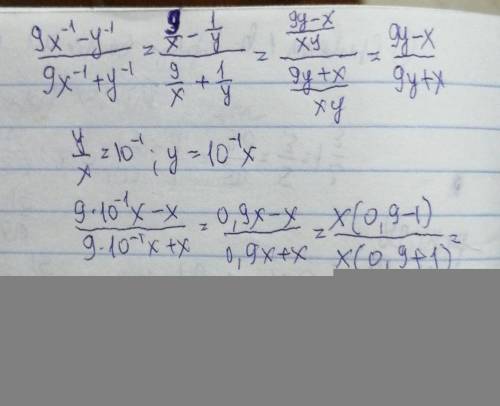 (9x⁻¹ - y⁻¹)/(9x⁻¹ + y⁻¹) = (9/x - 1/y)/(9/x + 1/y) = ((9y-x)/xy)/((9y+x)/xy) = (9y-x)/(9y+x)
y/x = 10⁻¹; y = 10⁻¹x
(9·10⁻¹x - x)/(9·10⁻¹x + x) = (0,9x - x)/(0,9x + x) = (x(0,9-1))/(x(0,9+1)) =